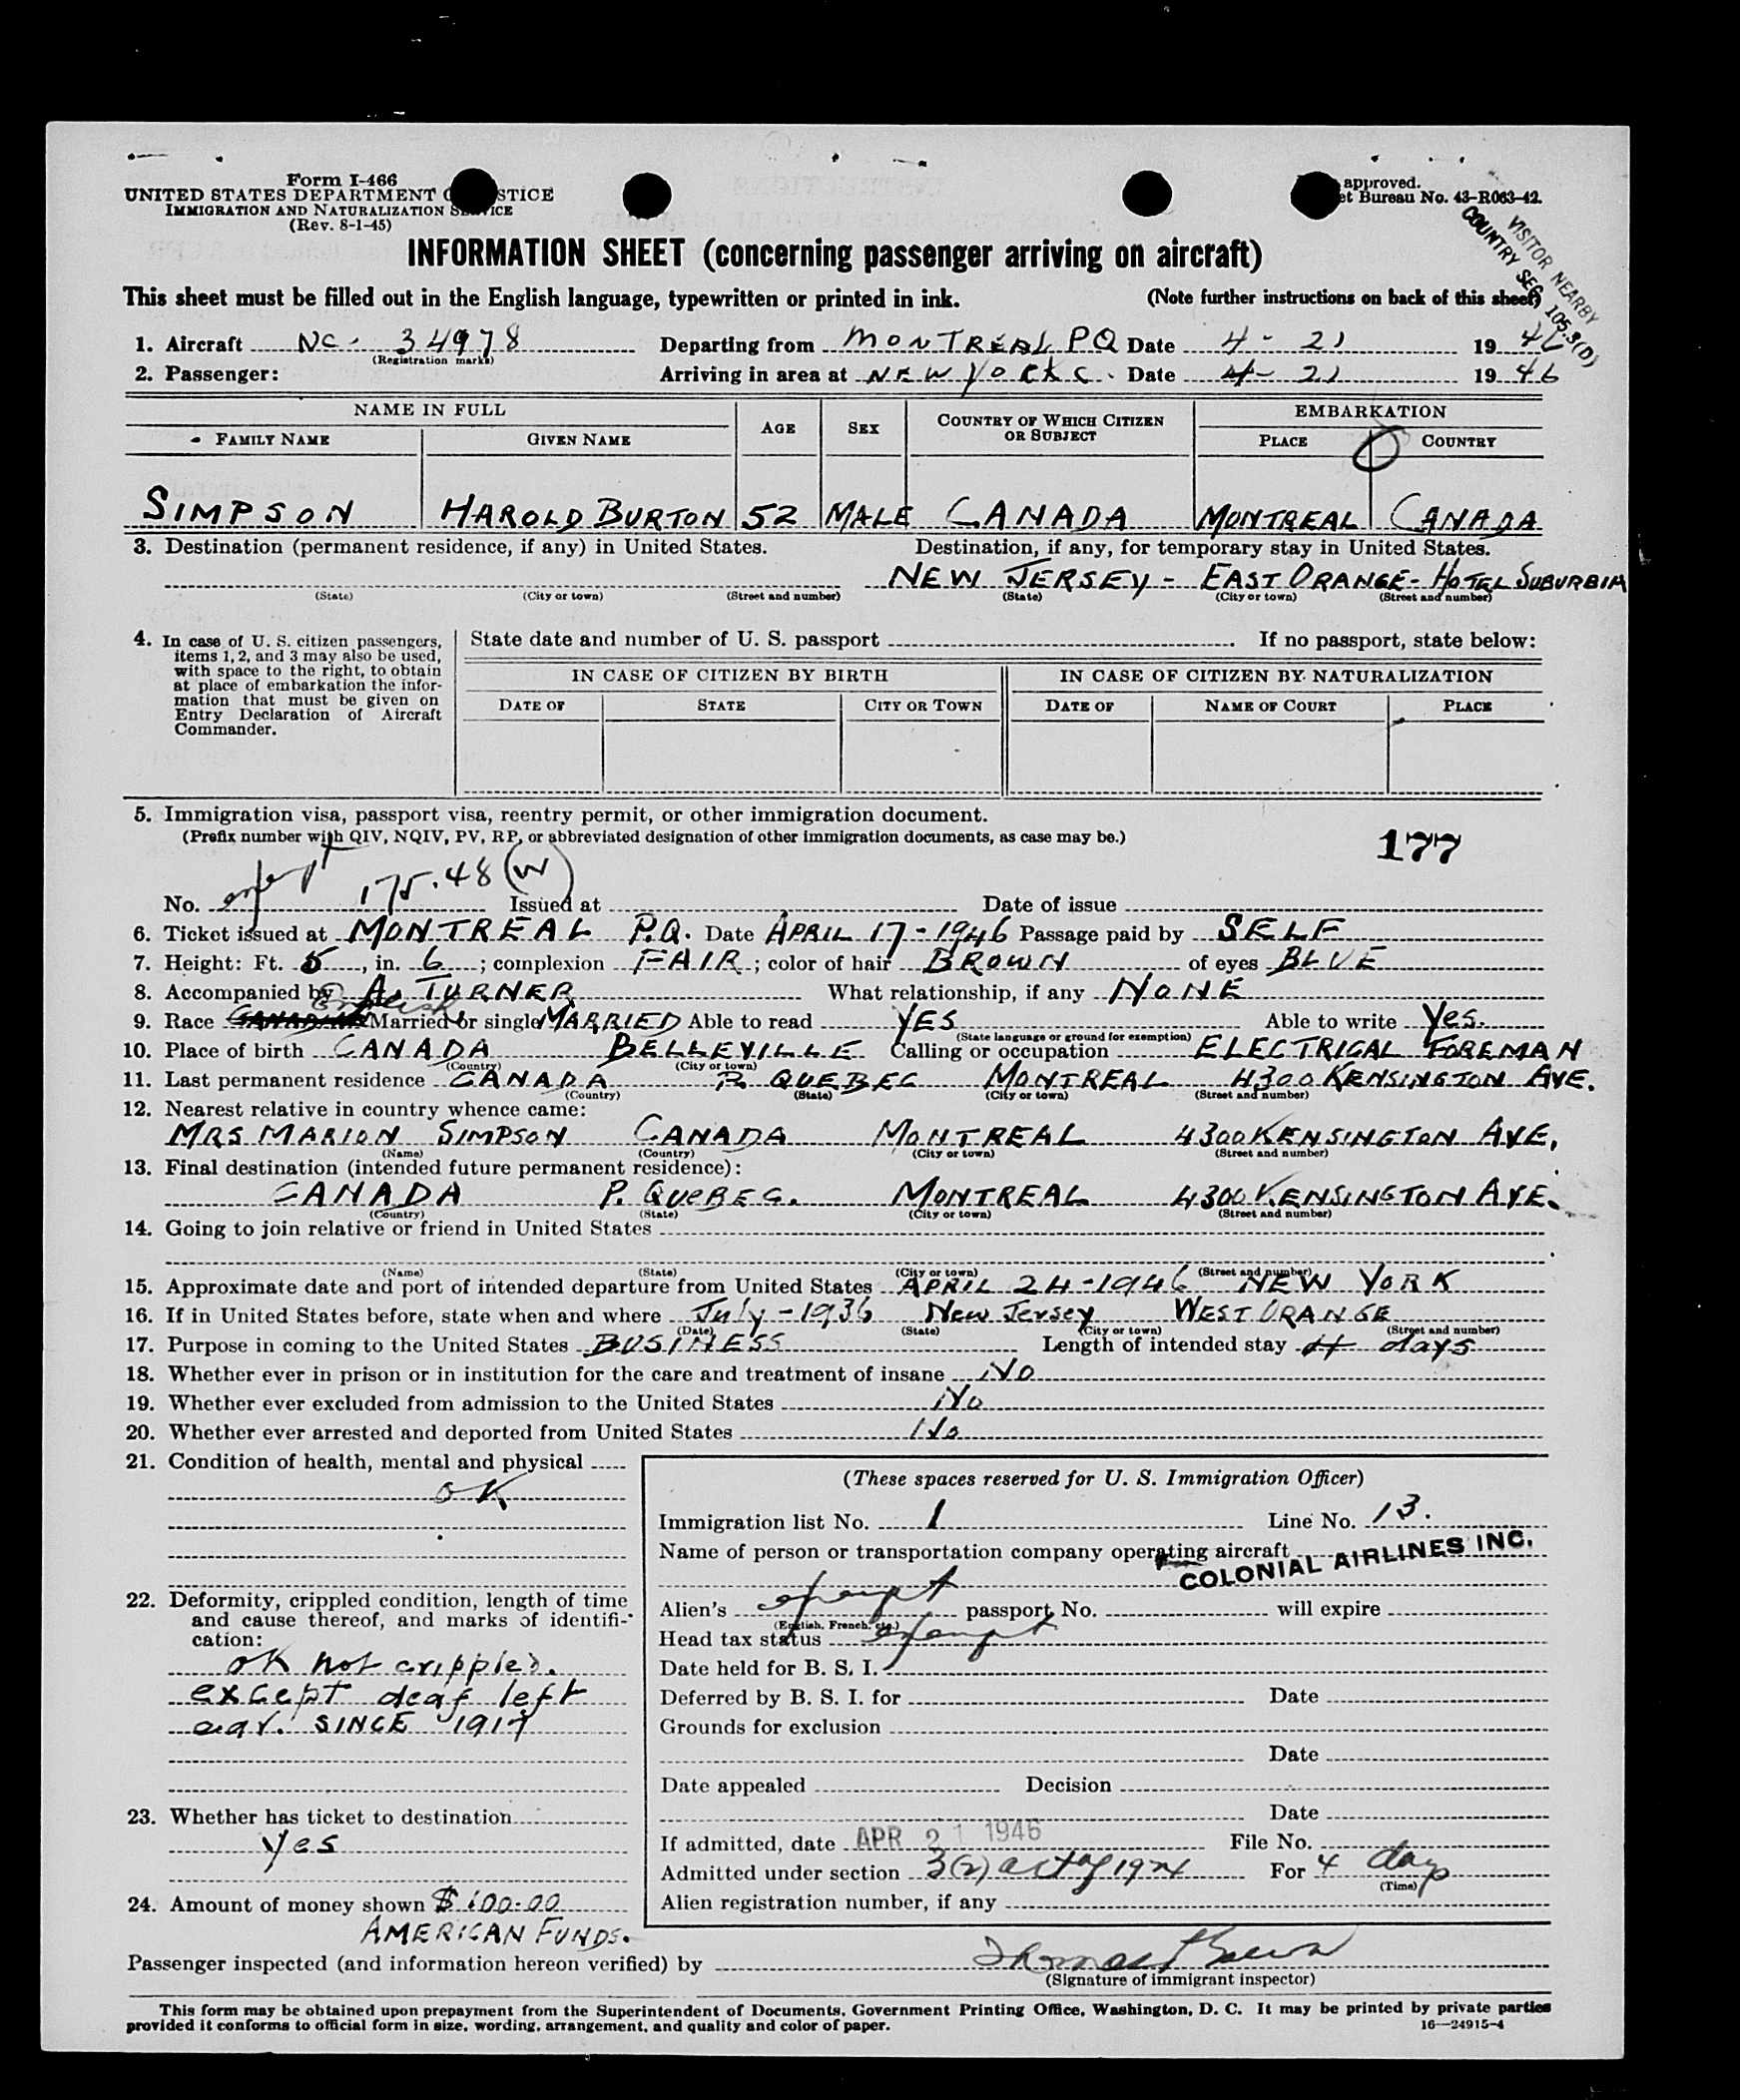 Form I-466
UNITED STATES DEPARTMENT STICE
IMMIGRATION AND NATURALIZATION SERVICE
(Rev. 8-1-45)
approved.
et Bureau No. 43-R063-42.
VISITOR NEARBY
COUNTRY SEC 105.3(D)
INFORMATION SHEET (concerning passenger arriving on aircraft)
This sheet must be filled out in the English language, typewritten or printed in ink. (Note further instructions on back of this sheet)
1. Aircraft NC- 34978 Departing from MONTREAL PQ Date 4-21 1946
(Registration marks)
2. Passenger: Arriving in area at NEW YORK C. Date 4-21 1946
NAME IN FULL AGE SEX COUNTRY OF WHICH CITIZEN OR SUBJECT EMBARKATION
FAMILY NAME GIVEN NAME PLACE COUNTRY
SIMPSON HAROLD BURTON 52 MALE CANADA MONTREAL CANADA
3. Destination (permanent residence, if any) in United States. Destination, if any, for temporary stay in United States.
NEW JERSEY - EAST ORANGE - HOTEL SUBURBIA
(State) (City or town) (Street and number) (State) (City or town) (Street and number)
4. In case of U. S. citizen passengers, items 1, 2, and 3 may also be used, with space to the right, to obtain at place of embarkation the information that must be given on Entry Declaration of Aircraft Commander.
State date and number of U. S. passport If no passport, state below:
IN CASE OF CITIZEN BY BIRTH IN CASE OF CITIZEN BY NATURALIZATION
DATE OF STATE CITY OR TOWN DATE OF NAME OF COURT PLACE
5. Immigration visa, passport visa, reentry permit, or other immigration document.
(Prefix number with QIV, NQIV, PV, RP, or abbreviated designation of other immigration documents, as case may be.)
177
No. exempt 175.48 (W) Issued at Date of issue
6. Ticket issued at MONTREAL P.Q. Date APRIL 17-1946 Passage paid by SELF
7. Height: Ft. 5, in. 6; complexion FAIR; color of hair BROWN of eyes BLUE
8. Accompanied by A. TURNER What relationship, if any NONE
9. Race Married or single MARRIED Able to read YES Able to write Yes.
(State language or ground for exemption)
10. Place of birth CANADA BELLEVILLE Calling or occupation ELECTRICAL FOREMAN
(Country) (City or town)
11. Last permanent residence CANADA P. QUEBEC MONTREAL 4300 KENSINGTON AVE.
(Country) (State) (City or town) (Street and number)
12. Nearest relative in country whence came:
MRS MARION SIMPSON CANADA MONTREAL 4300 KENSINGTON AVE,
(Name) (Country) (City or town) (Street and number)
13. Final destination (intended future permanent residence):
CANADA P. QUEBEC. MONTREAL 4300 KENSINGTON AVE.
(Country) (State) (City or town) (Street and number)
14. Going to join relative or friend in United States
(Name) (State) (City or town) (Street and number)
15. Approximate date and port of intended departure from United States APRIL 24-1946 NEW YORK
16. If in United States before, state when and where July-1936 New Jersey WEST ORANGE
(Date) (State) (City or town) (Street and number)
17. Purpose in coming to the United States BUSINESS Length of intended stay 4 days
18. Whether ever in prison or in institution for the care and treatment of insane No
19. Whether ever excluded from admission to the United States No
20. Whether ever arrested and deported from United States No
21. Condition of health, mental and physical
OK
22. Deformity, crippled condition, length of time and cause thereof, and marks of identification:
OK not crippled.
except deaf left
ear. SINCE 1917
23. Whether has ticket to destination
Yes
24. Amount of money shown $100.00
AMERICAN FUNDS.
(These spaces reserved for U. S. Immigration Officer)
Immigration list No. 1 Line No. 13.
Name of person or transportation company operating aircraft
COLONIAL AIRLINES INC.
Alien's exempt passport No. will expire
(English, French, etc.)
Head tax status exempt
Date held for B. S. I.
Deferred by B. S. I. for Date
Grounds for exclusion
Date
Date appealed Decision
Date
If admitted, date APR 21 1946 File No.
Admitted under section 3(2) act of 1924 For 4 days
(Time)
Alien registration number, if any
Passenger inspected (and information hereon verified) by Thomas
(Signature of immigrant inspector)
This form may be obtained upon prepayment from the Superintendent of Documents, Government Printing Office, Washington, D. C. It may be printed by private parties
provided it conforms to official form in size, wording, arrangement, and quality and color of paper. 16—24915-4